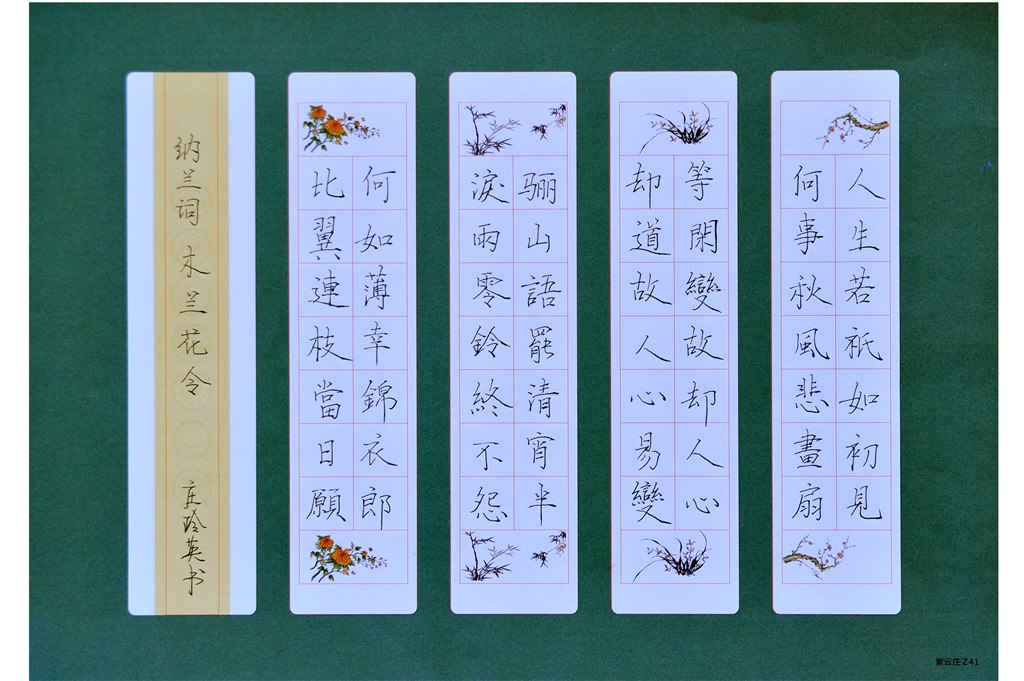 人生若祇如初見
何事秋風悲畫扇
等閑變故却人心
却道故人心易變
骊山語罷清宵半
淚雨零鈴終不怨
何如薄幸錦衣郎
比翼連枝當日願
纳兰词 木兰花令 庄玲英书
紫云庄Z41